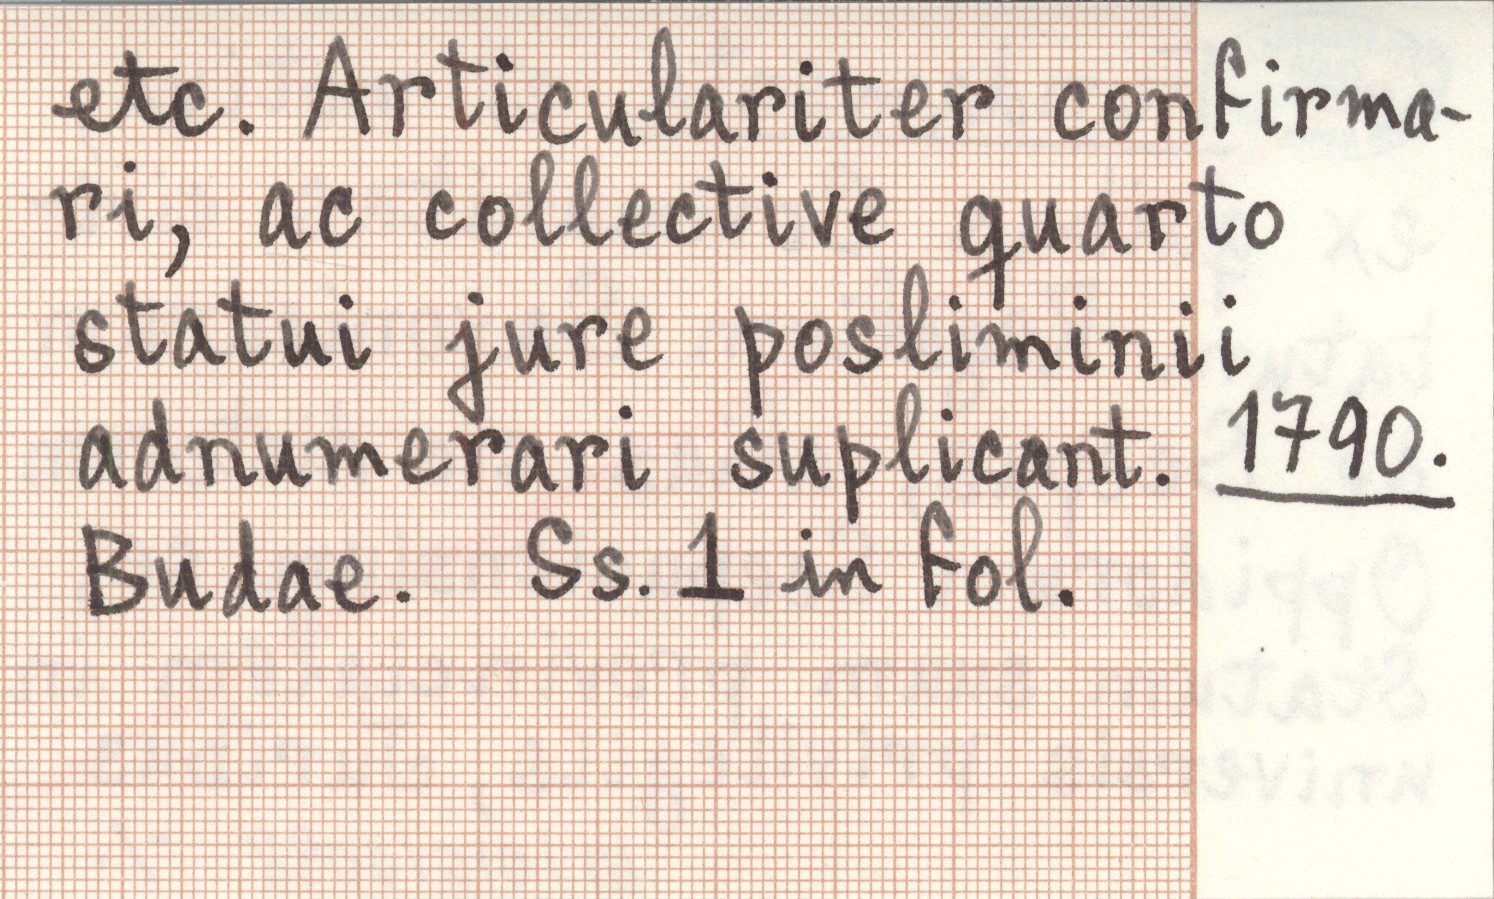 etc. Articulariter confirma-
ri, ac collective quarto
statui jure posliminii
adnumerari suplicant. 1790.
Budae. Ss. 1 in fol.